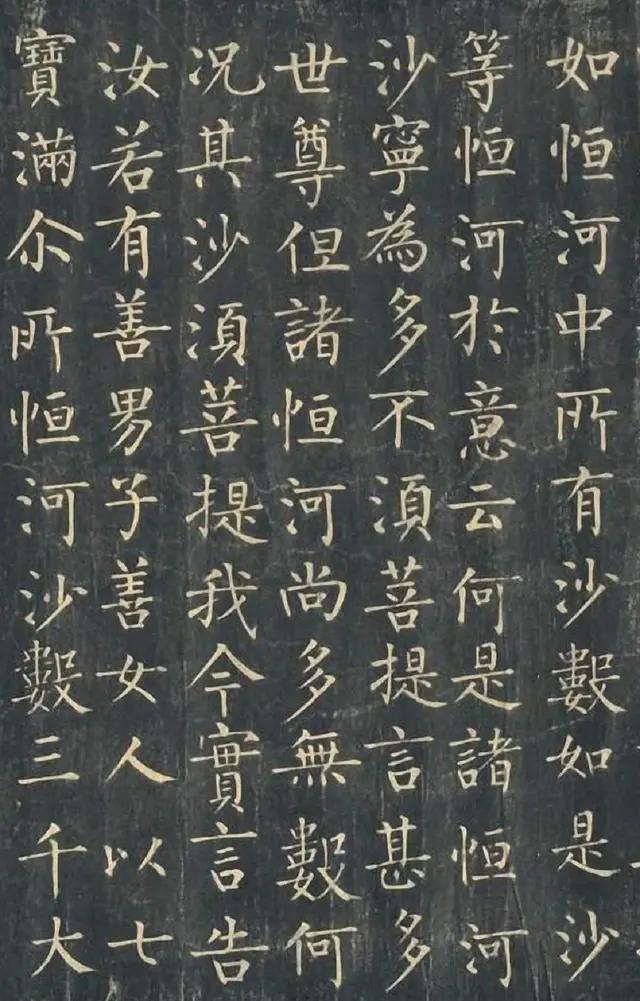 如恒河中所有沙數如是沙
等恒河於意云何是諸恒河
沙寧為多不須菩提言甚多
世尊但諸恒河尚多無數何
況其沙須菩提我今實言告
汝若有善男子善女人以七
寶滿尒所恒河沙數三千大